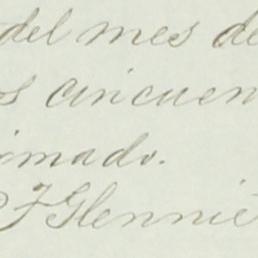 del mes de
os cincuen
irmado.
F Glennie